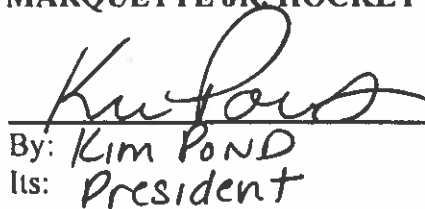 MARQUETTE JR. HOCKEY
Kim Pond
By: Kim POND
Its: President